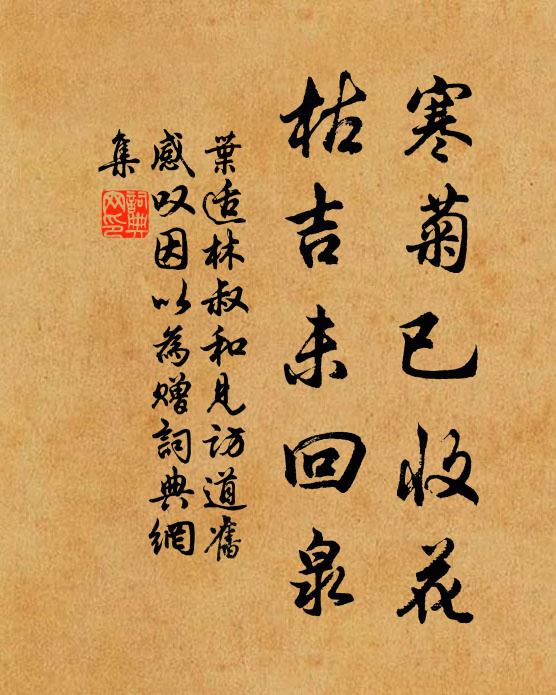 寒菊已收花
枯吉未回泉
葉适林叔和見访道舊
感叹因以為赠詞典網
集
詞典網印